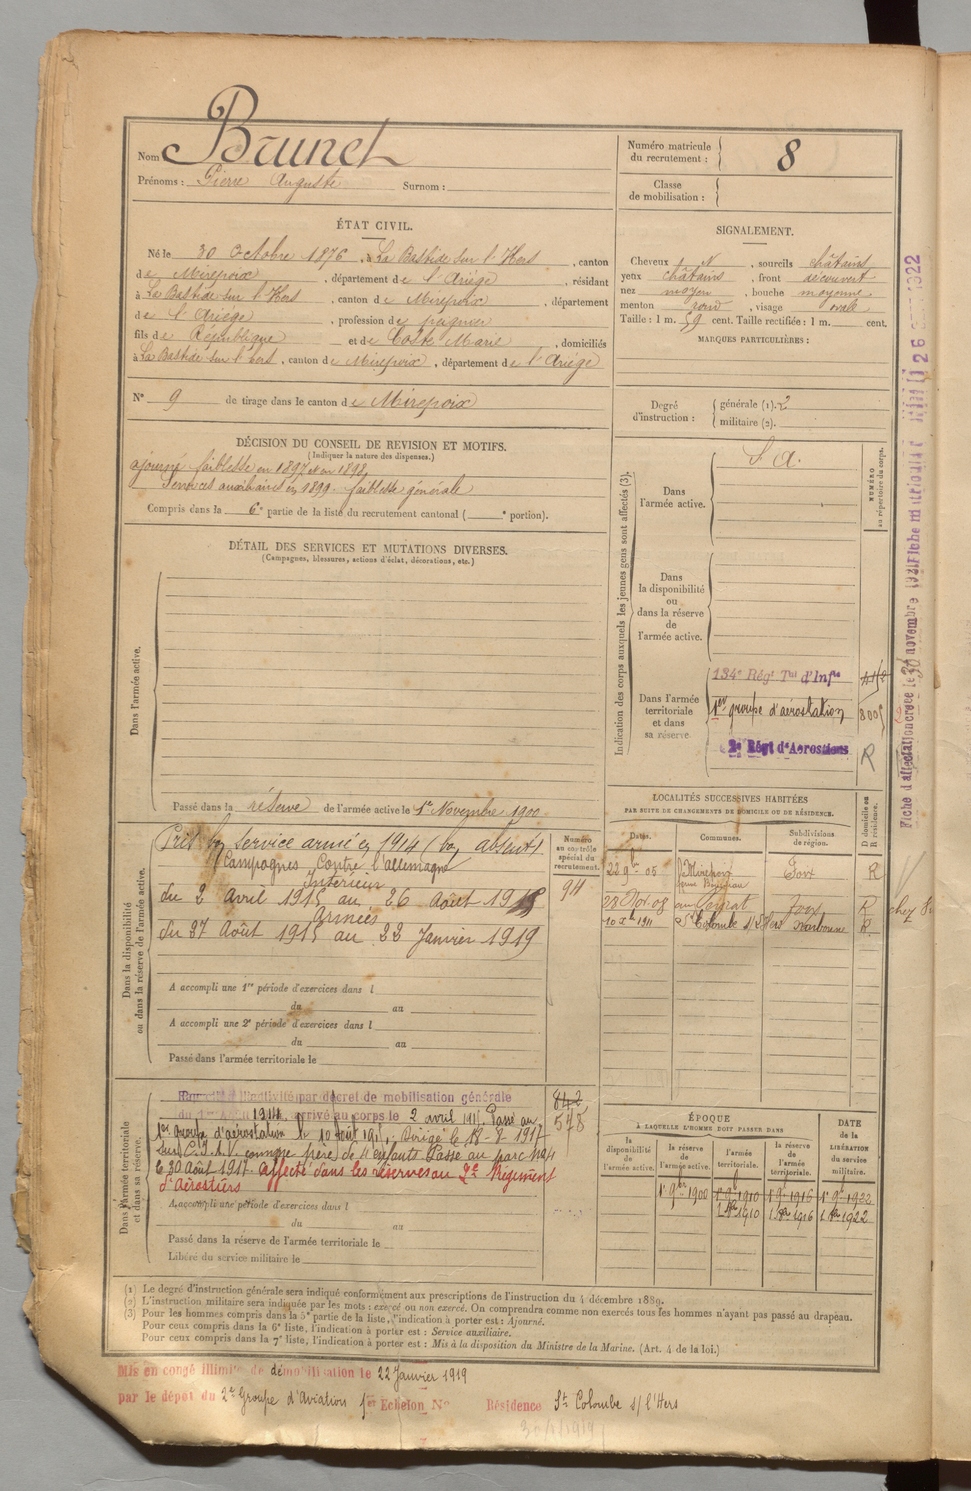 Nom Brunet
Prénoms : Pierre Auguste Surnom :
Numéro matricule du recrutement : 8
Classe de mobilisation :
ÉTAT CIVIL.
Né le 30 Octobre 1876, à La Bastide sur l'Hers, canton
de Mirepoix, département de l'Ariège, résidant
à La Bastide sur l'Hers, canton de Mirepoix, département
de l'Ariège, profession de peignier
fils de République et de Coste Marie, domiciliés
à La Bastide sur l'hers, canton de Mirepoix, département de l'Ariège
N° 9 de tirage dans le canton de Mirepoix
SIGNALEMENT.
Cheveux N, sourcils châtains
yeux châtains, front découvert
nez moyen, bouche moyenne
menton rond, visage ovale
Taille : 1 m. 59 cent. Taille rectifiée : 1 m. cent.
MARQUES PARTICULIÈRES :
Degré d'instruction : générale (1). 2
militaire (2).
DÉCISION DU CONSEIL DE REVISION ET MOTIFS.
(Indiquer la nature des dispenses.)
ajourné faiblesse en 1897 et en 1898
Services auxiliaires en 1899. faiblesse générale
Compris dans la 6e partie de la liste du recrutement cantonal ( e portion).
DÉTAIL DES SERVICES ET MUTATIONS DIVERSES.
(Campagnes, blessures, actions d'éclat, décorations, etc.)
Dans l'armée active.
Passé dans la réserve de l'armée active le 1er Novembre 1900
Indication des corps auxquels les jeunes gens sont affectés (3).
NUMÉRO au répertoire du corps.
Dans l'armée active.
S. A.
Dans la disponibilité ou dans la réserve de l'armée active.
Dans l'armée territoriale et dans sa réserve
134e Régt Tal d'Infie
1er groupe d'aérostation
2e Régt d'Aérostiers R
Fiche d'affectation créée le novembre
Dans la disponibilité ou dans la réserve de l'armée active.
Numéro au contrôle spécial du recrutement.
94
service armé en 1914 (bon absent)
Campagnes Contre l'allemagne
Intérieur
du 2 Avril 1915 au 26 Août 1915
Armées
du 27 Août 1915 au 22 Janvier 1919
A accompli une 1re période d'exercices dans l
du au
A accompli une 2e période d'exercices dans l
du au
Passé dans l'armée territoriale le
LOCALITÉS SUCCESSIVES HABITÉES
PAR SUITE DE CHANGEMENTS DE DOMICILE OU DE RÉSIDENCE.
Dates. Communes. Subdivisions de région. D domicile ou R résidence.
22 9b 05 Mirepoix Foix R
28 Nov 08 Foix R
10 Xb 1911 Ste Colombe s/ l'Hers Narbonne R
Dans l'armée territoriale et dans sa réserve.
842
578
Rappelé à l'activité par décret de mobilisation générale
du 1er Août 1914, arrivé au corps le 2 avril 1915. Passé au
1er groupe d'aérostation le 10 Août 1915, Dirigé le 18-8-1917
sur C.I.A.V. comme père de 4 enfants Passé au parc N°4
le 30 août 1917. Affecté dans les réserves au 2e Régiment
d'Aérostiers
A accompli une période d'exercices dans l
du au
Passé dans la réserve de l'armée territoriale le
Libéré du service militaire le
ÉPOQUE
À LAQUELLE L'HOMME DOIT PASSER DANS
DATE de la LIBÉRATION du service militaire.
la disponibilité de l'armée active. la réserve de l'armée active. l'armée territoriale. la réserve de l'armée territoriale.
1er 9bre 1900 1er 9b 1910 1er 9b 1916 1er 9b 1922
1 1910 1 1916 1 1922
(1) Le degré d'instruction générale sera indiqué conformément aux prescriptions de l'instruction du 4 décembre 1889.
(2) L'instruction militaire sera indiquée par les mots : exercé ou non exercé. On comprendra comme non exercés tous les hommes n'ayant pas passé au drapeau.
(3) Pour les hommes compris dans la 5e partie de la liste, l'indication à porter est : Ajourné.
Pour ceux compris dans la 6e liste, l'indication à porter est : Service auxiliaire.
Pour ceux compris dans la 7e liste, l'indication à porter est : Mis à la disposition du Ministre de la Marine. (Art. 4 de la loi.)
Mis en congé illimité de démobilisation le 22 Janvier 1919
par le dépôt du 2e Groupe d'Aviation 1er Echelon N° Résidence Ste Colombe s/ l'Hers